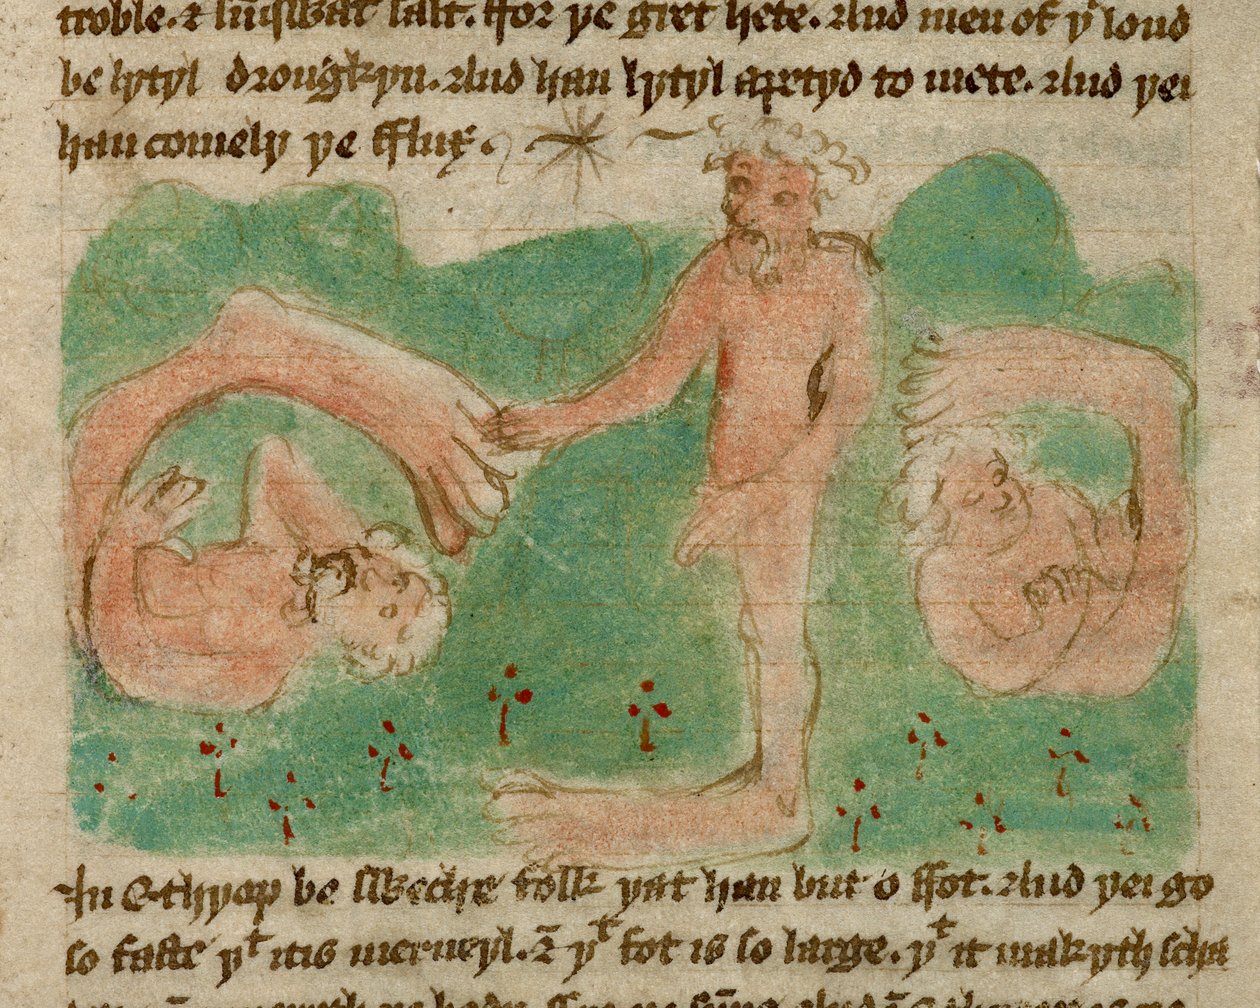 troble. & summwhat salt. ffor yͤ gret hete. And men of yͭ lond
be lytyl drougkyn. And han lytyl apetyd to mete. And yei
han comely yͤ fflux.
In Ethyop be sweche folk yat han but o ffot. And yei go
so faste yͭ it is merueyl. & yͭ fot is so large. yͭ it makyth